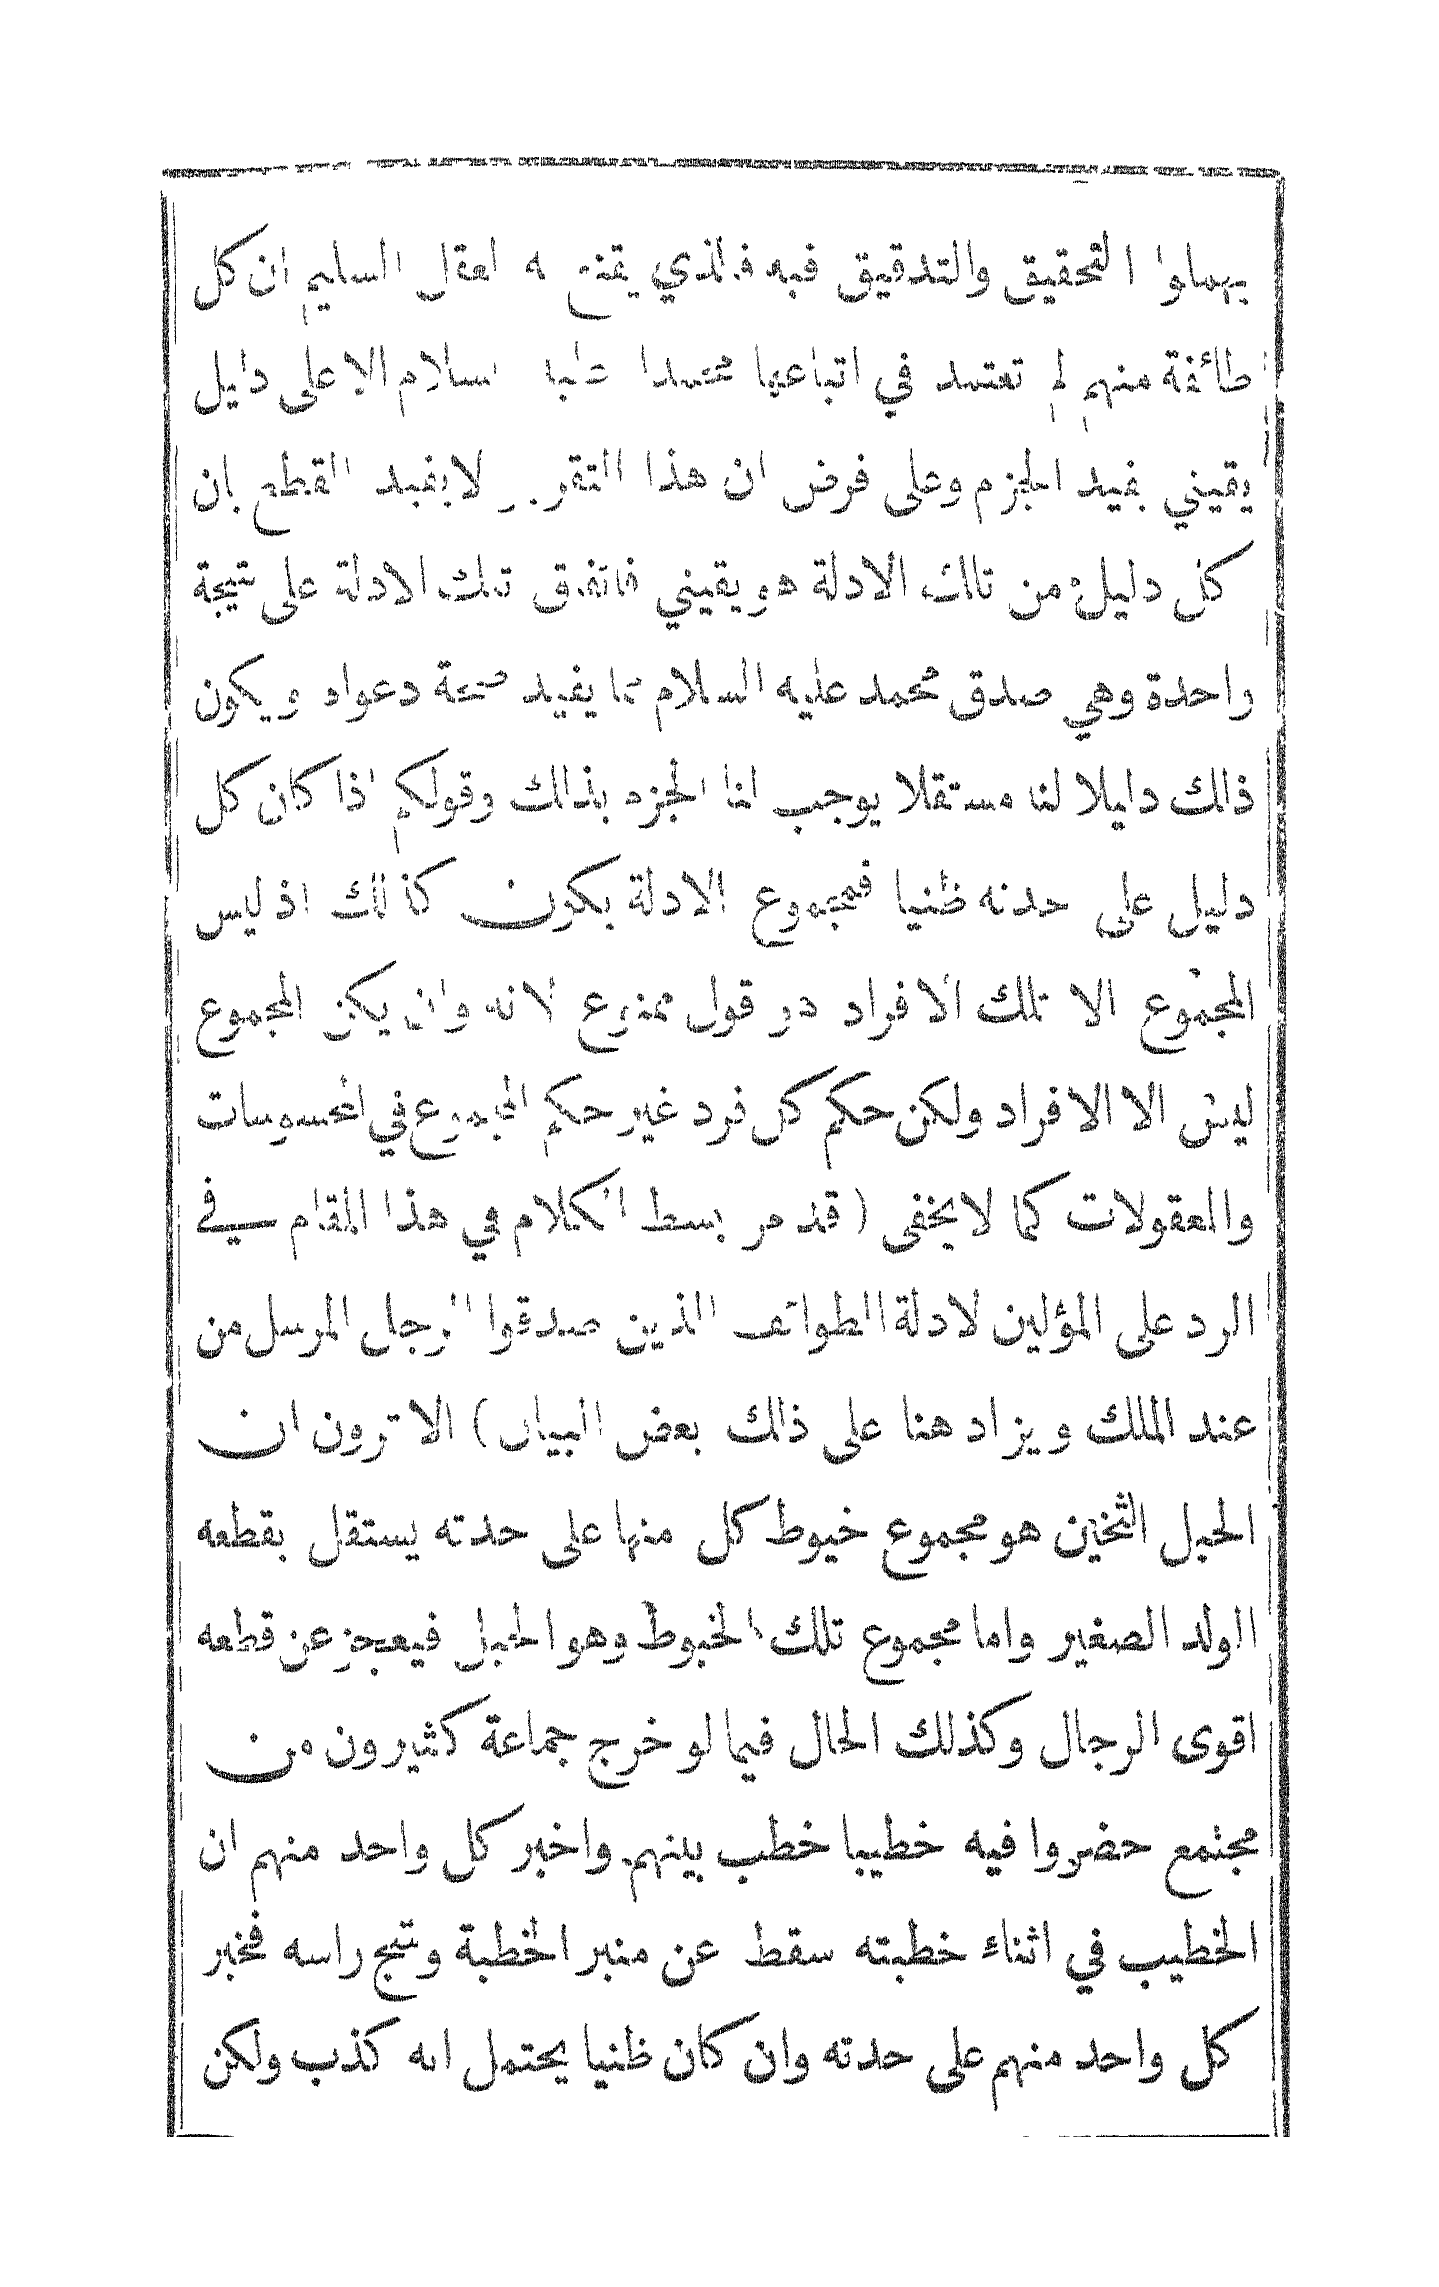 يهملوا التحقيق والتدقيق فيه فالذي يقنع به العقل السليم ان كل
طائفة منهم لم تعتمد في اتباعها محمدا عليه السلام الا على دليل
يقيني يفيد الجزم وعلى فرض ان هذا التقرير لا يفيد القطع بان
كل دليل من تلك الادلة هو يقيني فاتفاق تلك الادلة على نتيجة
واحدة وهي صدق محمد عليه السلام مما يفيد صحة دعواه ويكون
ذلك دليلا لنا مستقلا يوجب لنا الجزم بذلك وقولكم اذا كان كل
دليل على حدته ظنيا فمجموع الادلة يكون كذلك اذ ليس
المجموع الا تلك الافراد هو قول ممنوع لانه وان يكن المجموع
ليس الا الافراد ولكن حكم كل فرد غير حكم المجموع في المحسوسات
والمعقولات كما لا يخفى (قد مر بسط الكلام في هذا المقام في
الرد على المؤلين لادلة الطوائف الذين صدقوا الرجل المرسل من
عند الملك ويزاد هنا على ذلك بعض البيان) الا ترون ان
الحبل الثخين هو مجموع خيوط كل منها على حدته يستقل بقطعه
الولد الصغير واما مجموع تلك الخيوط وهو الحبل فيعجز عن قطعه
اقوى الرجال وكذلك الحال فيما لو خرج جماعة كثيرون من
مجتمع حضروا فيه خطيبا خطب بينهم واخبر كل واحد منهم ان
الخطيب في اثناء خطبته سقط عن منبر الخطبة وشج راسه فخبر
كل واحد منهم على حدته وان كان ظنيا يحتمل انه كذب ولكن